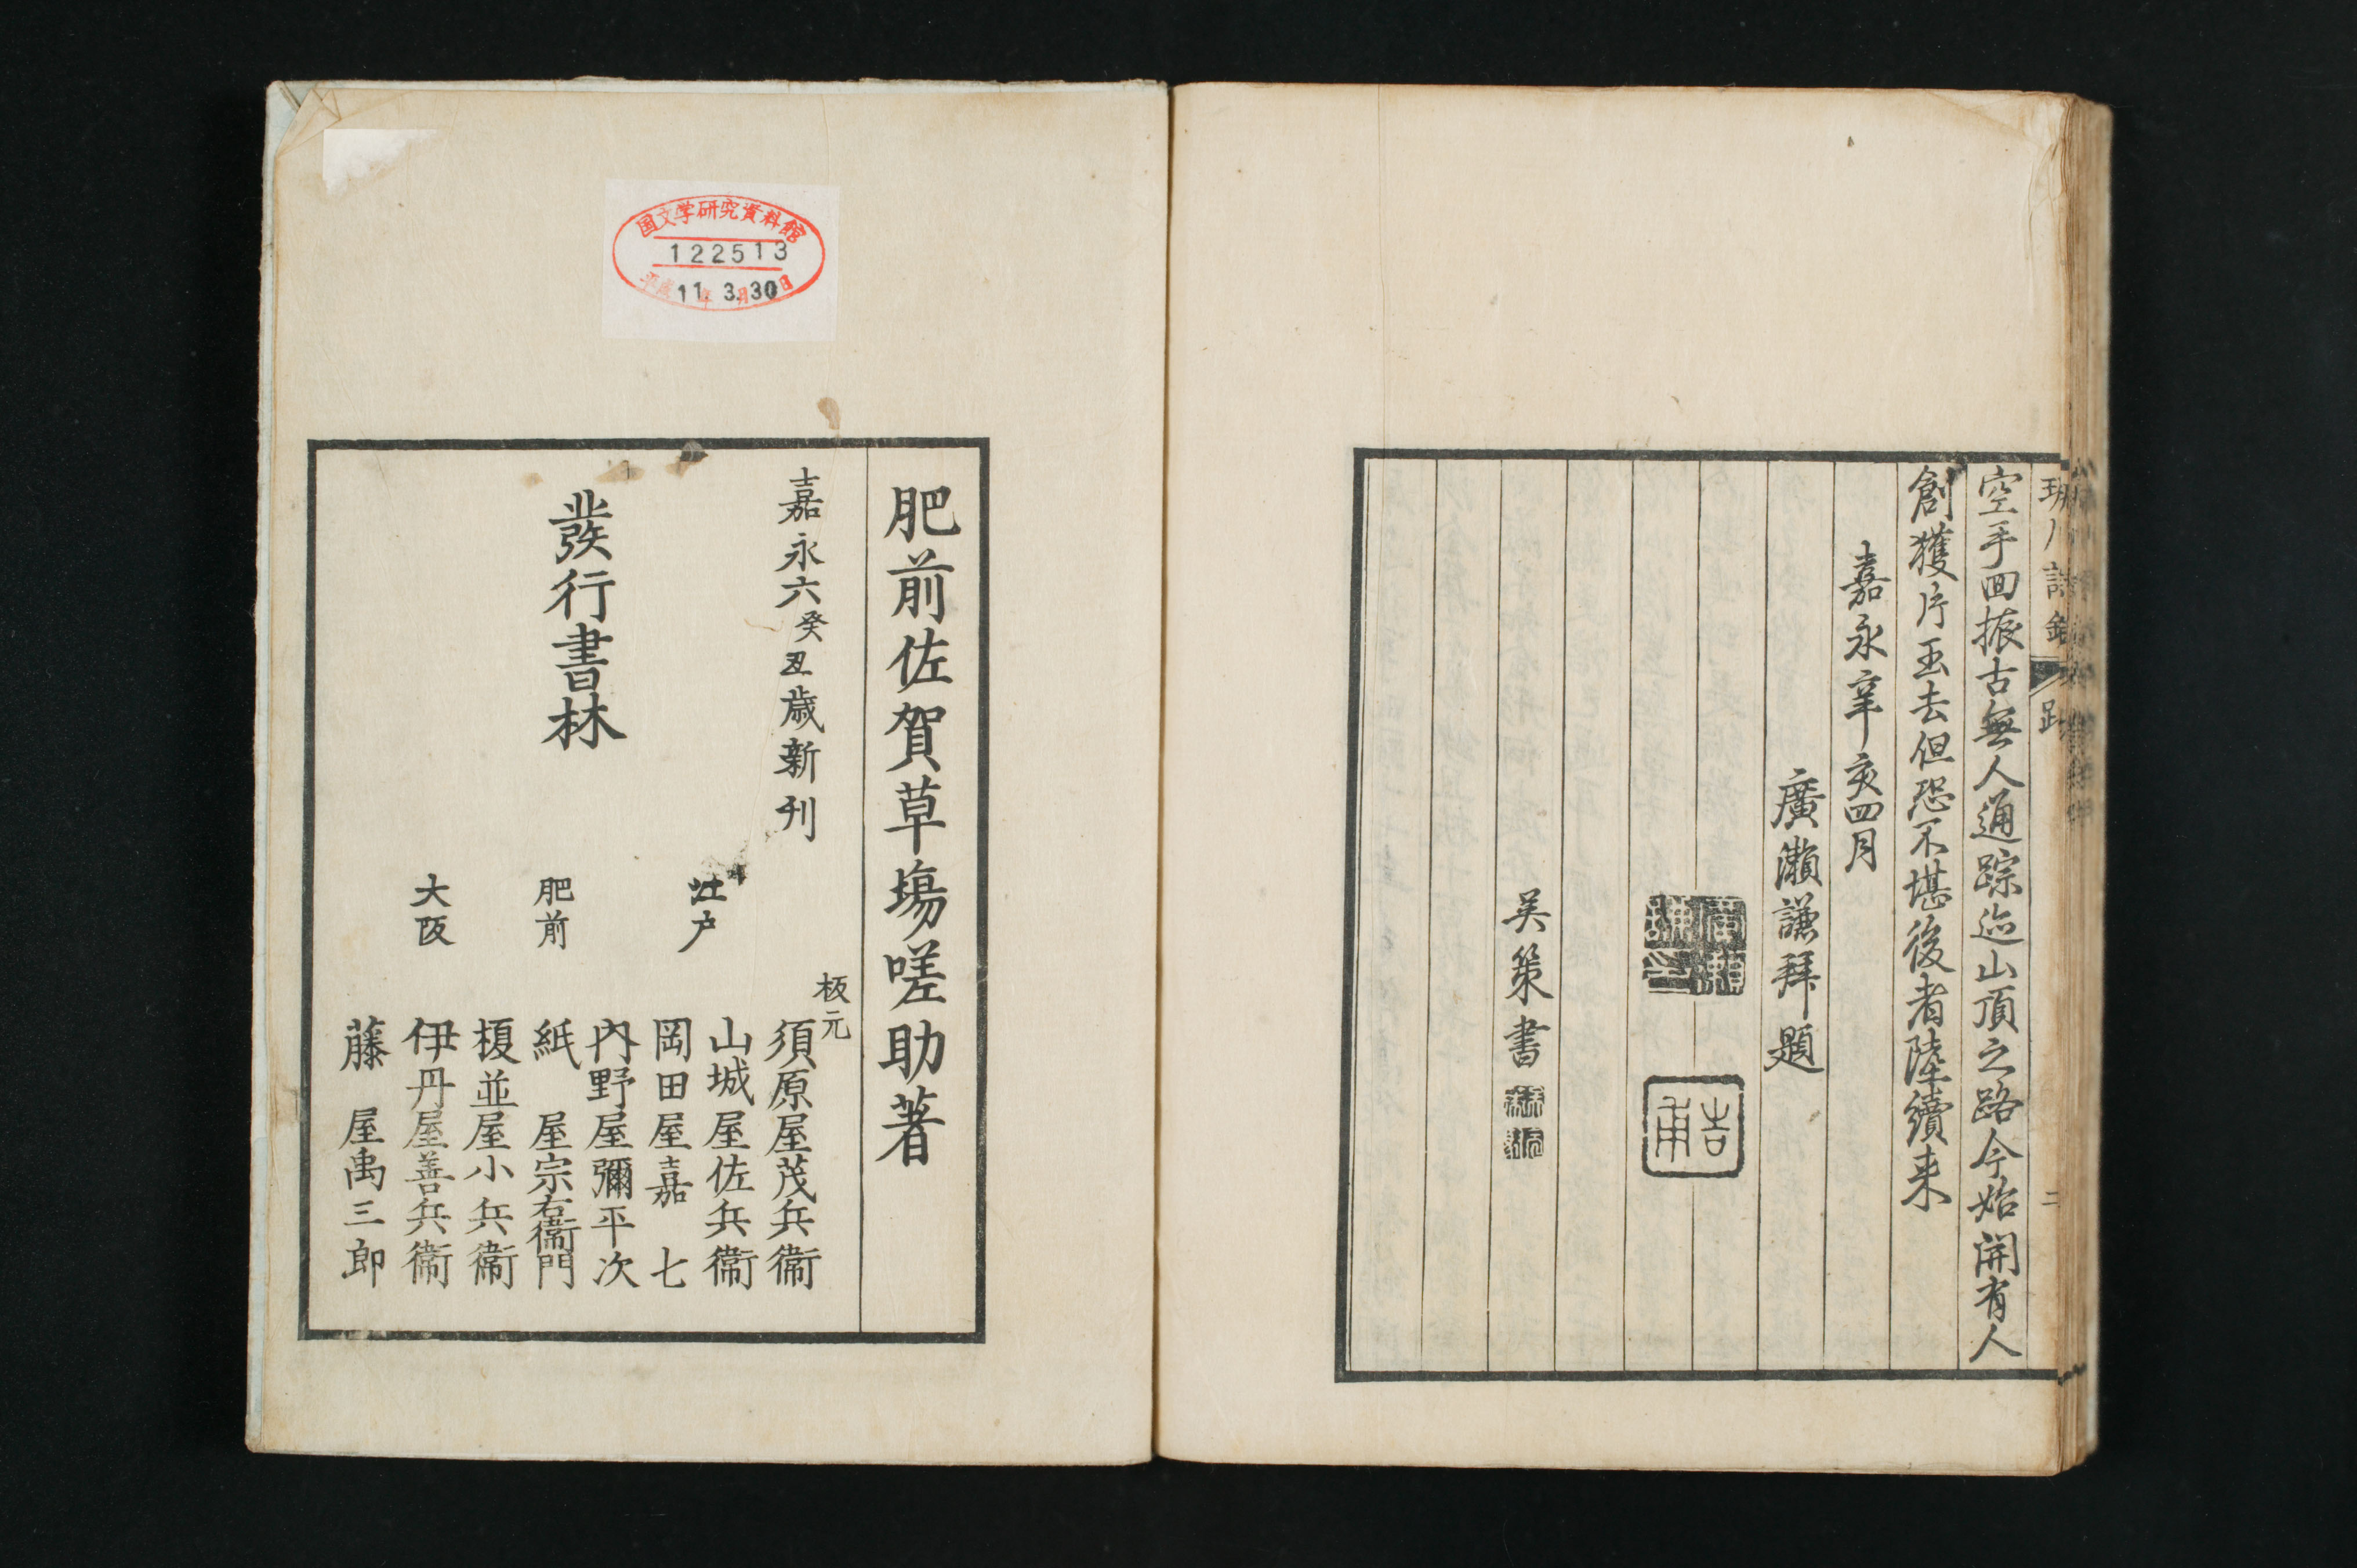 空手回振古無人通踪迹山頂之路今始開有人
創獲片玉去但恐不堪後者陸續来
嘉永辛亥四月
廣瀬謙拜題
吉甫
吴策書
二
国文学研究資料館
122513
平成11年3月30日
肥前佐賀草塲嗟助著
嘉永六癸丑歳新刊
發行書林
江戸
板元
須原屋茂兵衞
山城屋佐兵衞
岡田屋嘉七
内野屋彌平次
肥前
紙屋宗右衞門
榎並屋小兵衞
大阪
伊丹屋善兵衞
藤屋禹三郎